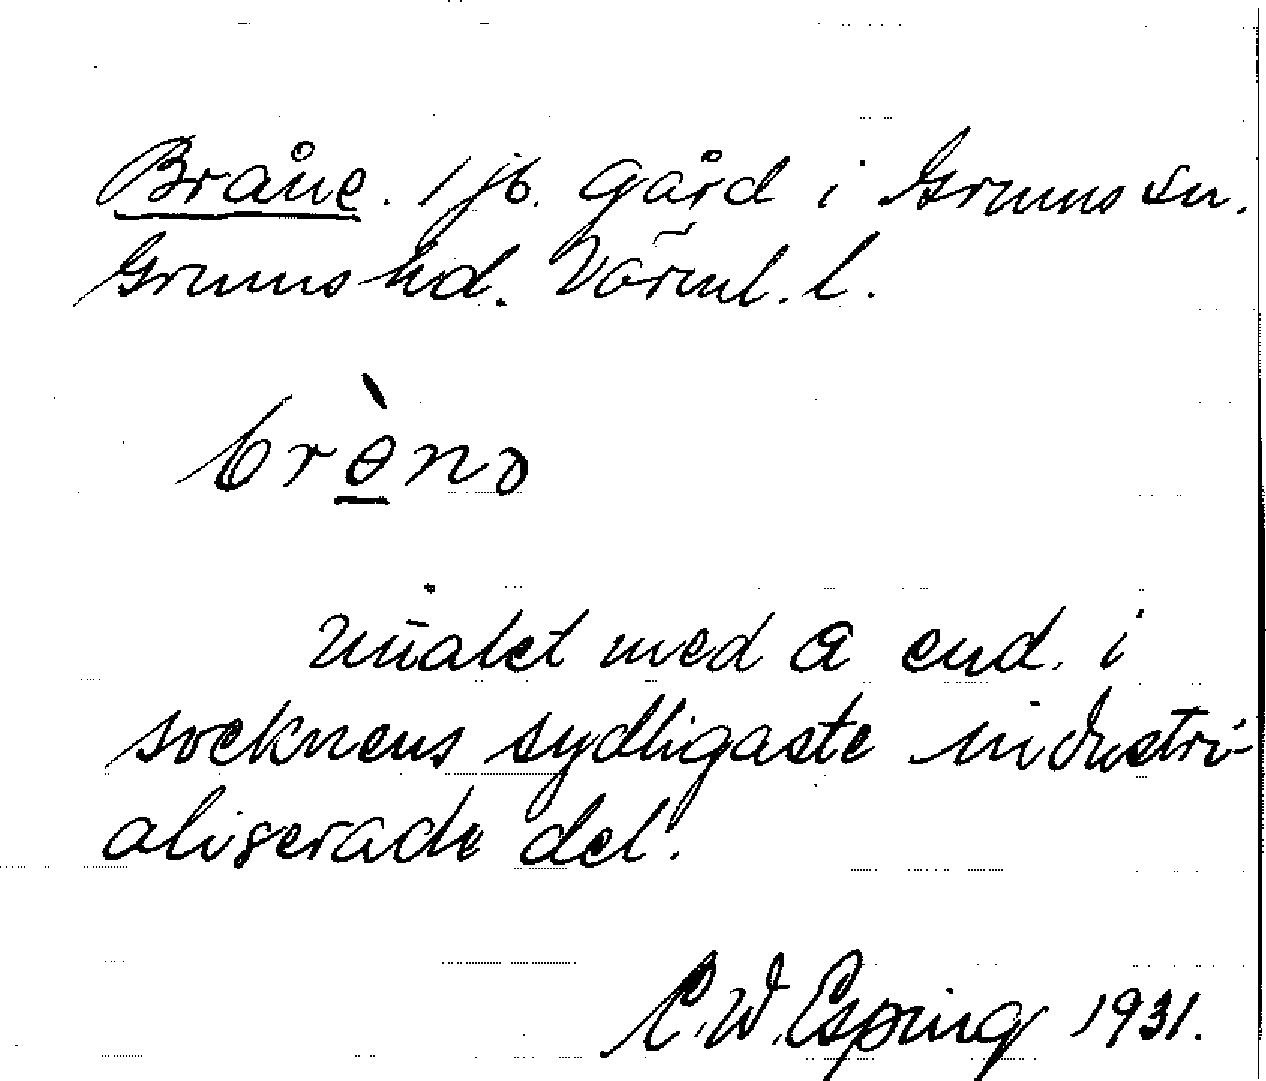 Bråne. 1 jb. gård i Grums sn.
Grums hd. Värml. l.
brɵ̀nə
Målet med a end. i
socknens sydligaste industri-
aliserade del.
C. W. Esping 1931.